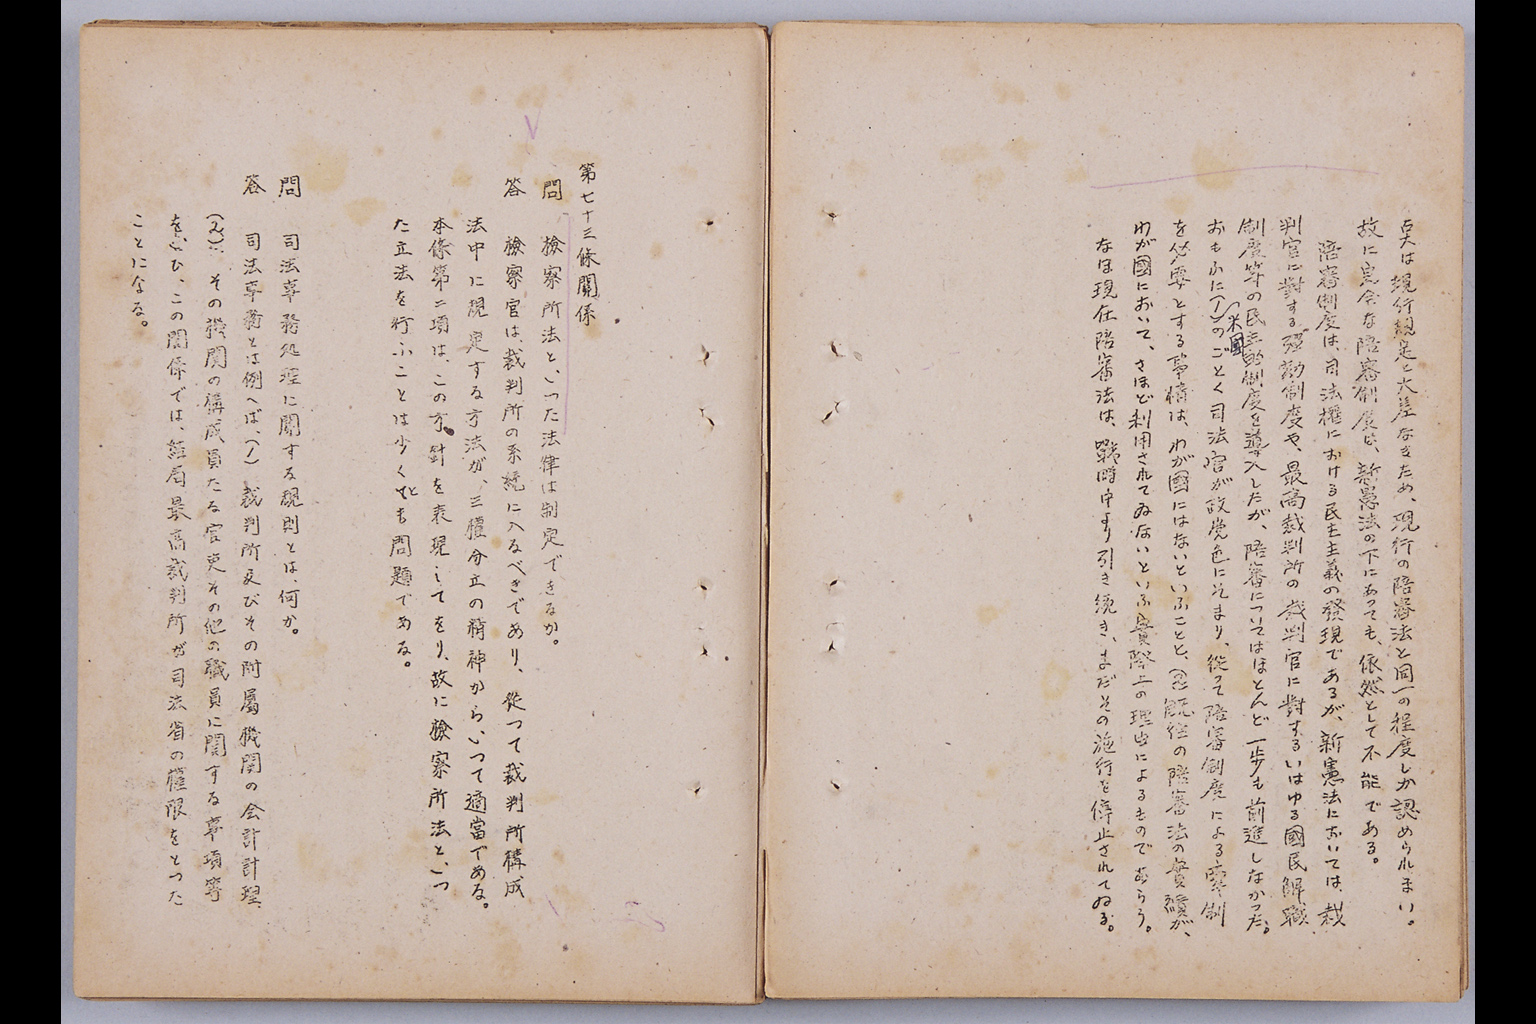 点は現行規定と大差なきため、現行の陪審法と同一の程度しか認められまい。
故に完全な陪審制度は、新憲法の下にあつても、依然として不能である。
陪審制度は、司法權における民主主義の發現であるが、新憲法においては、裁
判官に對する彈劾制度や、最高裁判所の裁判官に對するいはゆる國民解職
制度等の民主的制度を導入したが、陪審についてはほとんど一歩も前進しなかつた。
おもふに(1)米國のごとく司法官が政党色にそまり、從つて陪審制度による牽制
を必要とする事情は、わが國にはないといふことと、(2)既往の陪審法の實績が、
わが國において、さほど利用されてゐないといふ實際上の理由によるものであらう。
なほ現在陪審法は、戰時中より引き続き、まだその施行を停止されてゐる。
第七十三條關係
問 檢察所法といつた法律は制定できるか。
答 檢察官は、裁判所の系統に入るべきであり、從つて裁判所構成
法中に規定する方法が、三權分立の精神からいつて適當である。
本條第二項は、この方針を表現してをり、故に檢察所法といつ
た立法を行ふことは少くとも問題である。
問 司法事務処理に關する規則とは、何か。
答 司法事務とは例へば、(1)裁判所及びその附屬機関の会計計理、
(2)、その機関の構成員たる官吏その他の職員に関する事項等
をいひ、この関係では、結局最高裁判所が司法省の權限をとつた
ことになる。